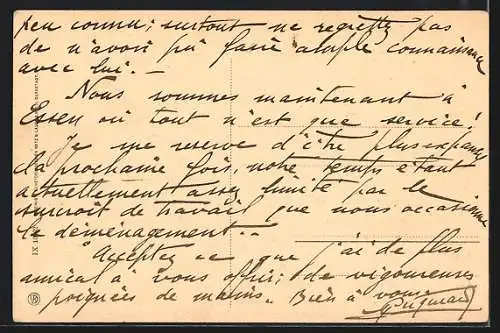 peu connu; surtout ne regrettez pas
de n'avoir pû faire ample connaissance
avec lui. —
Nous sommes maintenant à
Essen où tout n'est que service!
Je me reserve d'être plus expansif
la prochaine fois, notre temps étant
actuellement assez limité par le
surcroit de travail que nous occasionne
le déménagement. -
Acceptez ce que j'ai de plus
amical à vous offrir; de vigoureuses
poignées de mains. Bien à vous